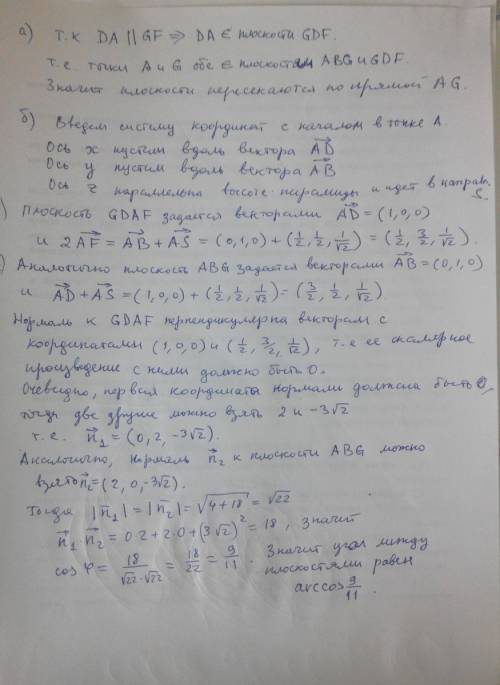 а) Т.к DA || GF ⇒ DA ∈ плоскости GDF.
т.е. точки A и G обе ∈ плоскостям ABG и GDF.
Значит плоскости пересекаются по прямой AG.
б) Введем систему координат с началом в точке A.
Ось x пустим вдоль вектора AD
Ось y пустим вдоль вектора AB
Ось z параллельна высоте пирамиды и идет в направ. S.
) Плоскость GDAF задается векторами AD = (1,0,0)
и 2AF = AB + AS = (0,1,0) + (1/2, 1/2, 1/√2) = (1/2, 3/2, 1/√2).
) Аналогично плоскость ABG задается векторами AB = (0,1,0)
и AD + AS = (1,0,0) + (1/2, 1/2, 1/√2) = (3/2, 1/2, 1/√2)
Нормаль к GDAF перпендикулярна векторам с
координатами (1,0,0) и (1/2, 3/2, 1/√2), т.е ее скалярное
произведение с ними должно быть 0.
Очевидно, первая координата нормали должна быть 0,
тогда две другие можно взять 2 и -3√2
т.е. n₁ = (0, 2, -3√2).
Аналогично, нормаль n₂ к плоскости ABG можно
взять n₂ = (2, 0, -3√2).
Тогда |n₁| = |n₂| = √4+18 = √22
n₁ · n₂ = 0·2 + 2·0 + (3√2)² = 18, значит
cos φ = 18/√22·√22 = 18/22 = 9/11. Значит угол между
плоскостями равен
arccos 9/11.